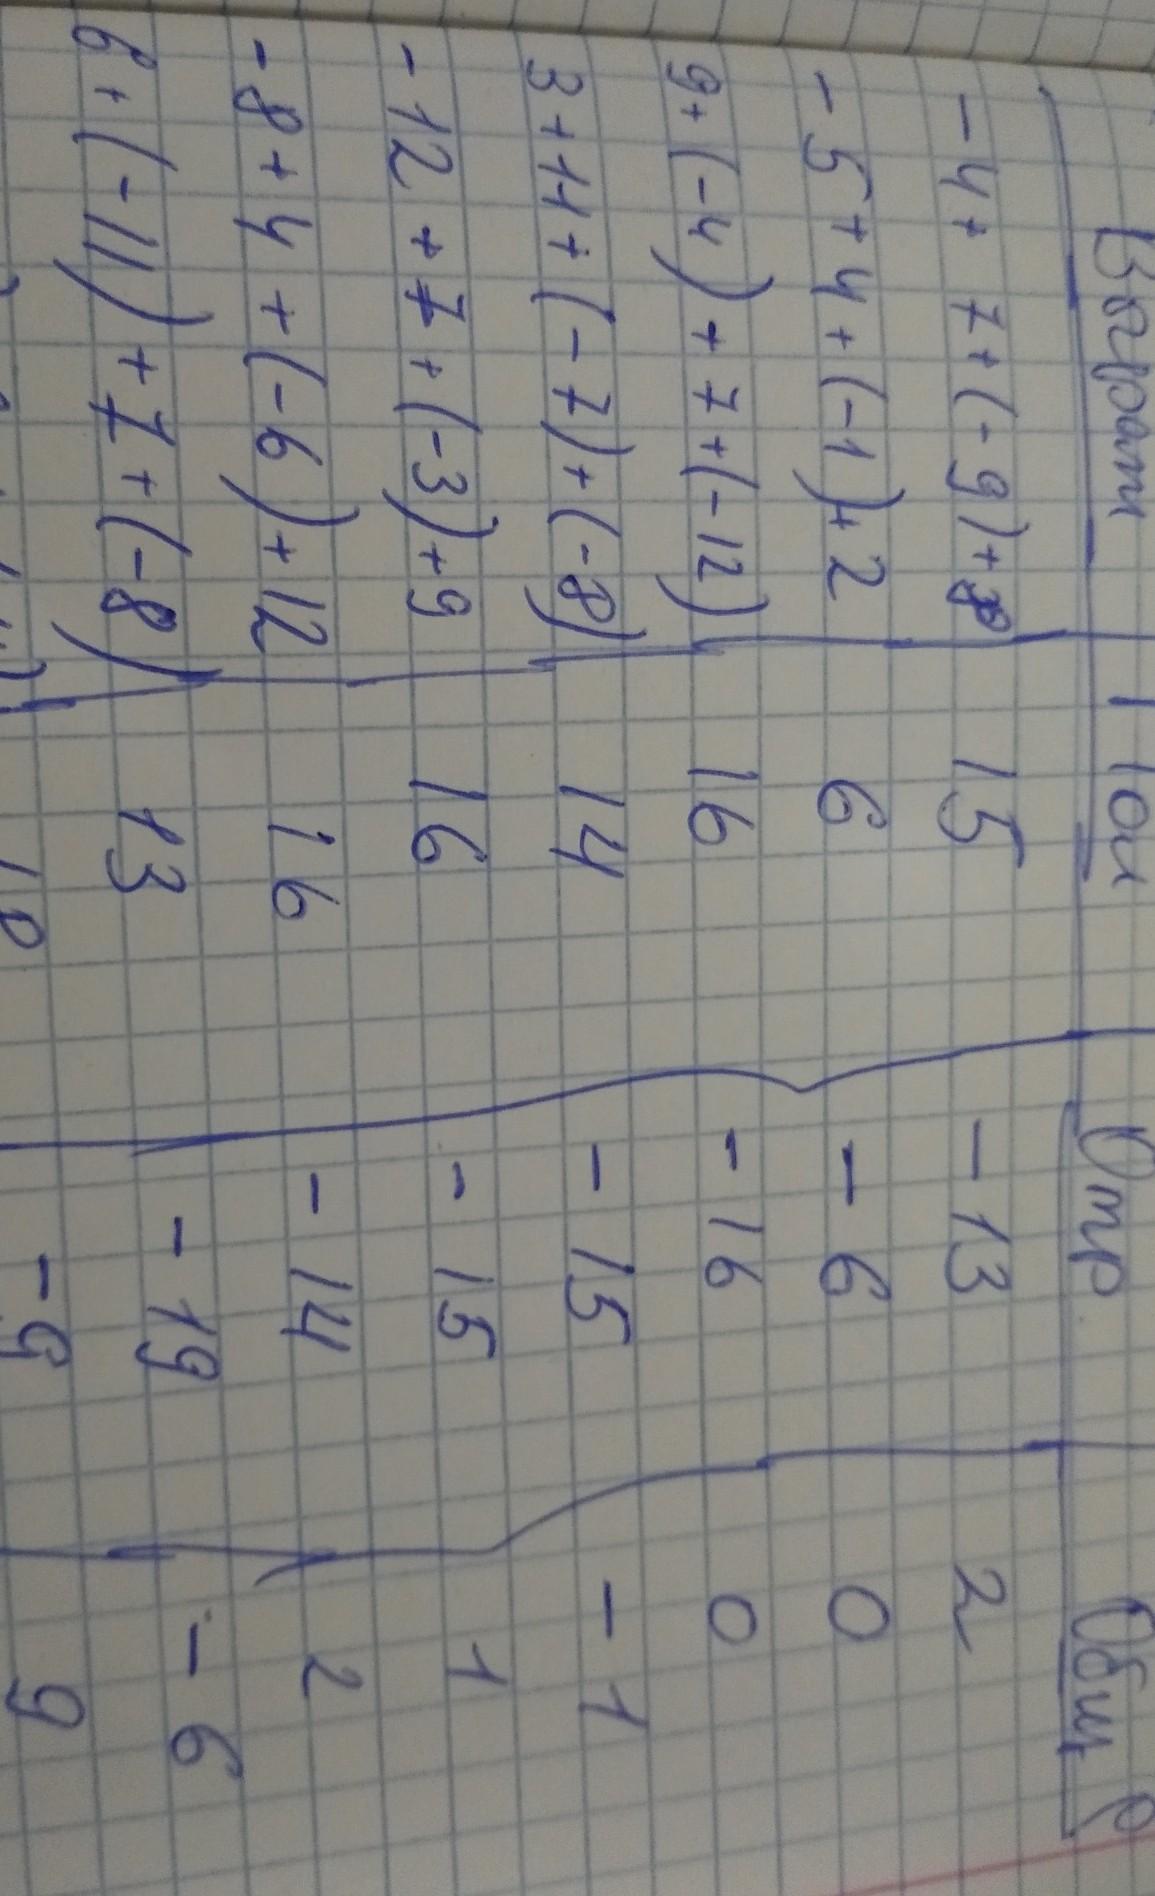 Отр. Общ
-4+7+(-9)+8 15 -13 2
-5+4+(-1)+2 6 -6 0
9+(-4)+7+(-12) 16 -16 0
3+11+(-7)+(-8) 14 -15 -1
-12+7+(-3)+9 16 -15 1
-8+4+(-6)+12 16 -14 2
6+(-11)+7+(-8) 13 -19 -6
-9 9